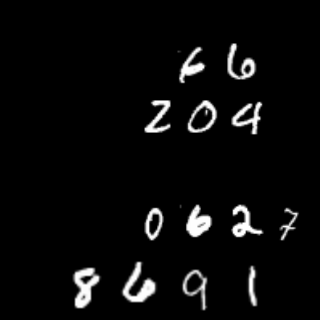 66
204
0627
8691